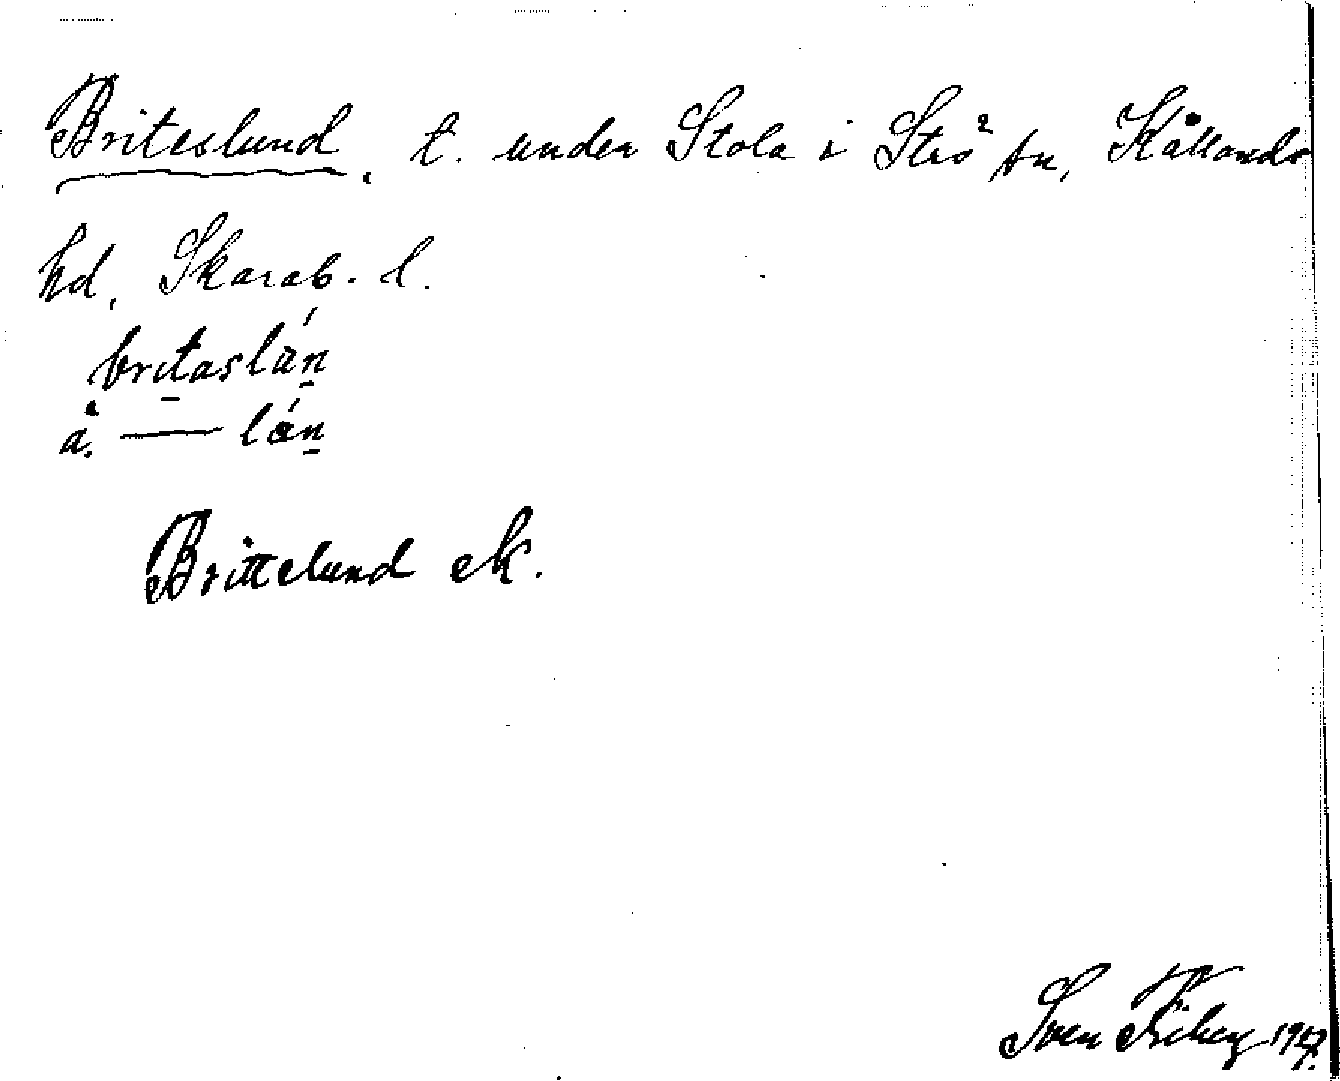 Briteslund, t. under Stola i Strö sn, Kållands
hd, Skarab. l.
britaslún
å. — lán
Brittelund ek.
Sven